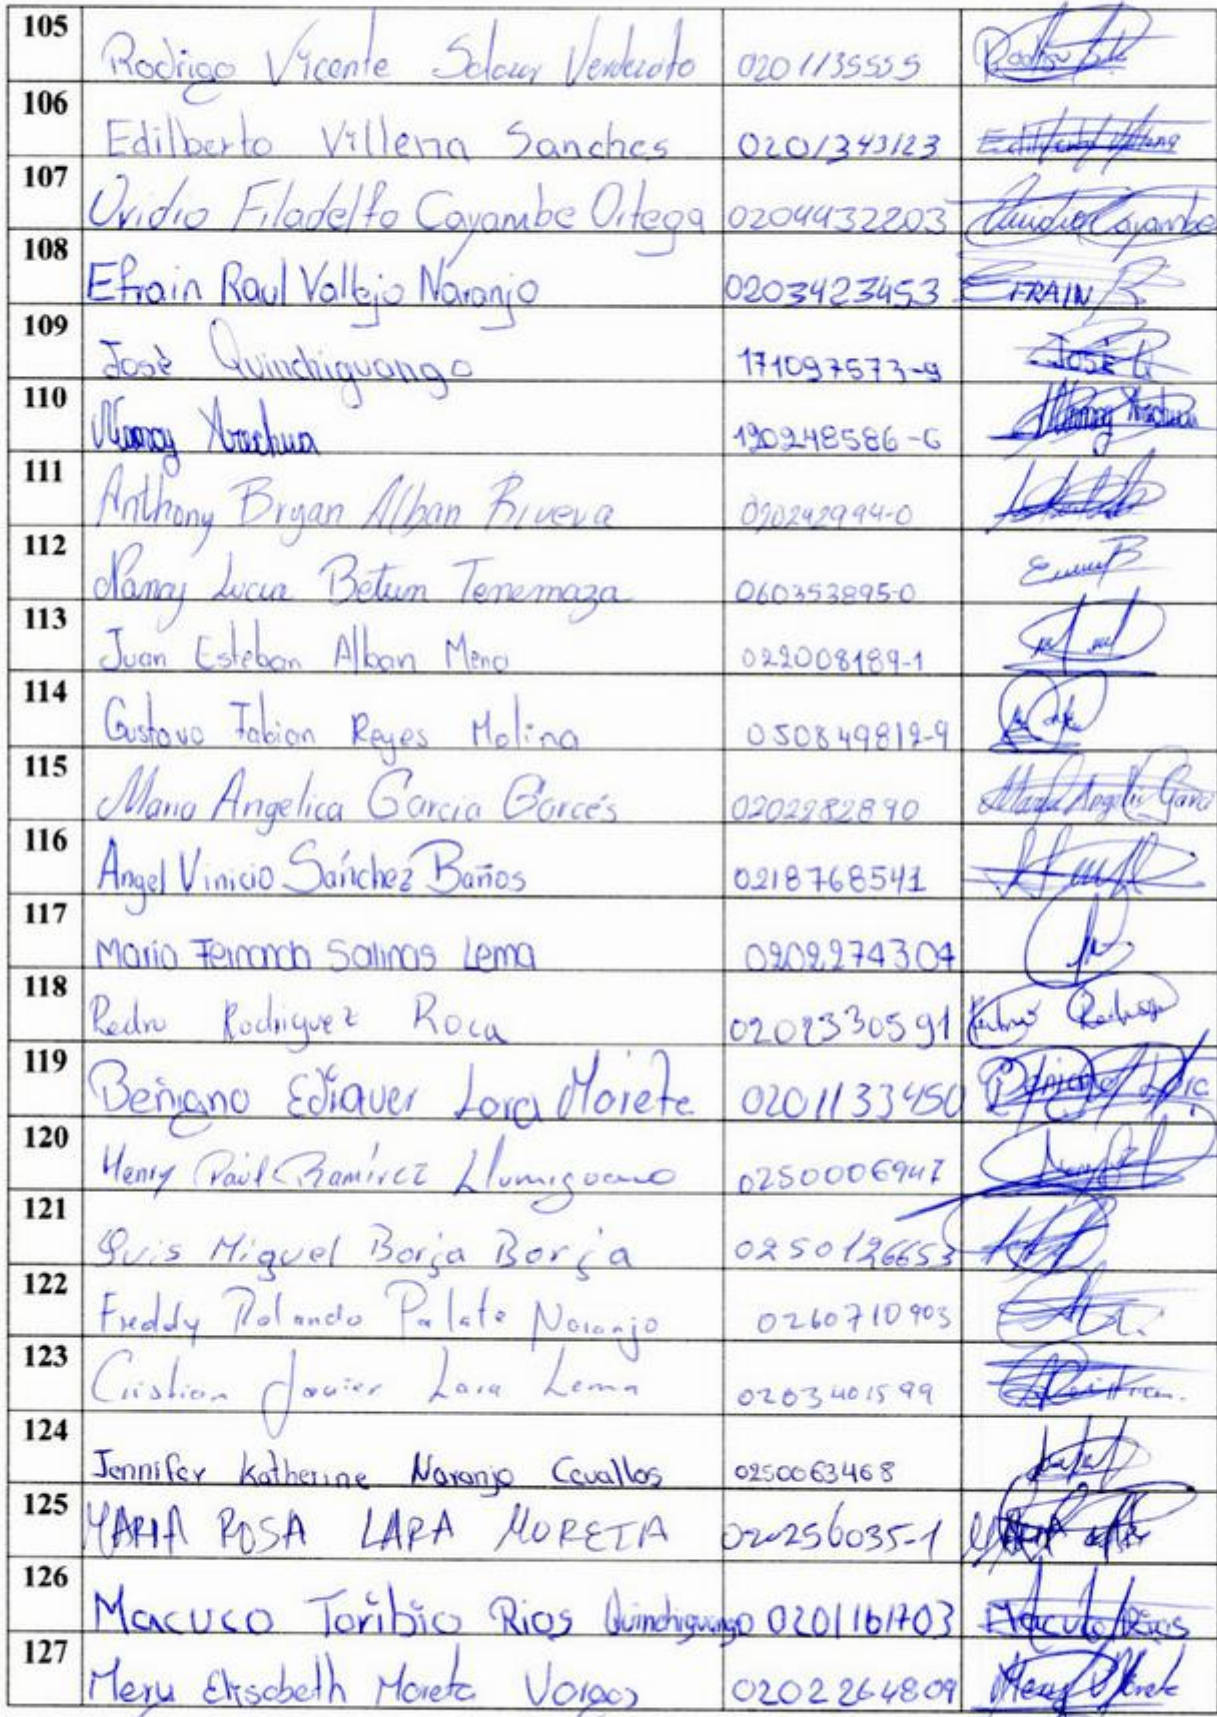 105 Rodrigo Vicente Verdezoto 0201135555
106 Edilberto Villena Sanches 0201343123 Edilberto Villena
107 Ovidio Filadelfo Cayambe Ortega 0204432203 Cayambe
108 Efrain Raul Vallejo Naranjo 0203423453 EFRAIN R
109 José Quinchiguango 171097573-9 JOSE Q
110 Nancy 120248586-6 Nancy
111 Anthony Bryan Alban Rivera 020242994-0
112 Nancy Lucia Betun Tenemaza 060353895-0
113 Juan Esteban Alban Mena 022008189-1
114 Gustavo Fabian Reyes Molina 050849812-9
115 Maria Angelica Garcia Garcés 0202282890 Maria Angelic Garci
116 Angel Vinicio Sánchez Baños 0218768541
117 Maria Fernanda Salinas Lema 0202274304
118 Pedro Rodriguez Roca 0202330591
119 Beñigno Lara Morete 0201133450
120 Henry Paúl Ramírez Llumiguano 0250006947
121 Luis Miguel Borja Borja 0250126653
122 Freddy Rolando Palate Naranjo 0260710903
123 Cristian Javier Lara Lema 0203401599
124 Jennifer Katherine Naranjo Cevallos 0250063468
125 MARIA ROSA LARA MORETA 020256035-1
126 Macuco Toribio Rios Quinchiguango 0201161703
127 Mery Elisabeth Moreta Vargas 0202264809 Mery Moreta